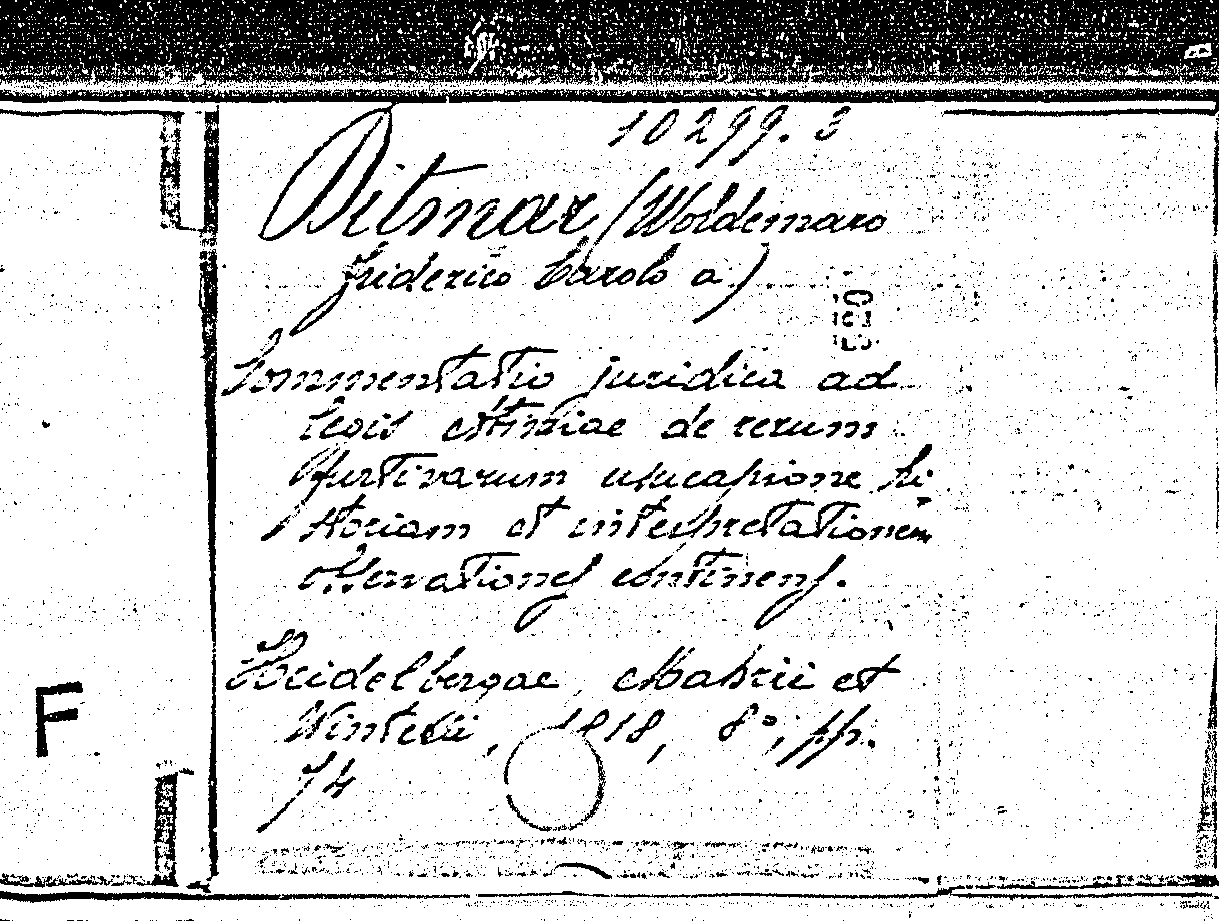 10299.3
Ditmar (Woldemaro
Friderico Carolo a)
Commentatio juridica ad
legis Atiniae de rerum
furtivarum usucapione hi-
storiam et interpretationem
observationes continens.
Heidelbergae, Mohrii et
Winteri, 1818, 8°, pp.
74
F